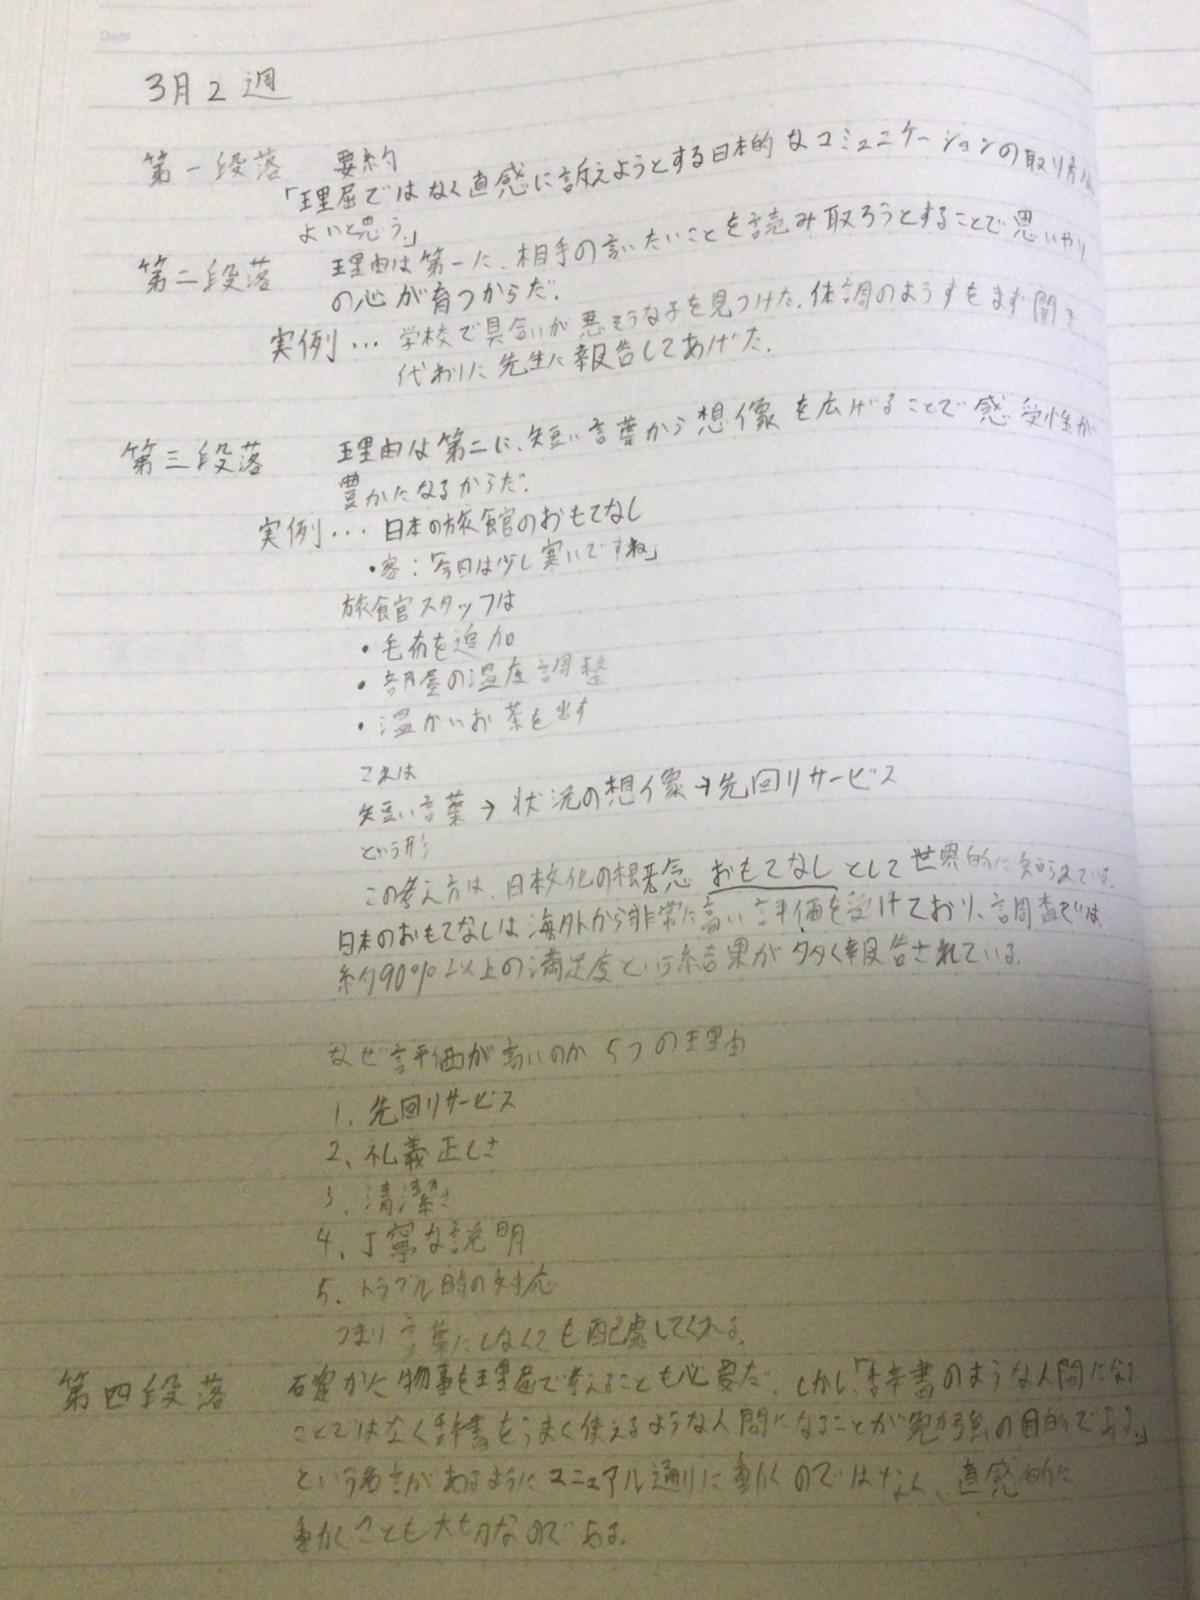 Date
3月2週
第一段落 要約
「理屈ではなく直感に訴えようとする日本的なコミュニケーションの取り方は
よいと思う。」
第二段落 理由は第一に、相手の言いたいことを読み取ろうとすることで思いやり
の心が育つからだ。
実例… 学校で具合が悪そうな子を見つけた。体調のようすをまず聞き
代わりに先生に報告してあげた。
第三段落 理由は第二に、短い言葉から想像を広げることで感受性が
豊かになるからだ。
実例… 日本の旅館のおもてなし
・客:「今日は少し寒いですね」
旅館スタッフは
・毛布を追加
・部屋の温度調整
・温かいお茶を出す
これは
短い言葉→状況の想像→先回りサービス
という形
この考え方は、日本文化の概念 おもてなし として世界的に知られている。
日本のおもてなしは海外から非常に高い評価を受けており、調査では
約90%以上の満足度という結果が多く報告されている。
なぜ評価が高いのか 5つの理由
1、先回りサービス
2、礼義正しさ
3、清潔さ
4、丁寧な説明
5、トラブル時の対応
つまり言葉にしなくても配慮してくれる。
第四段落 確かに物事を理屈で考えることも必要だ。しかし、「辞書のような人間になる
ことではなく辞書をうまく使えるような人間になることが勉強の目的である。」
という名言があるようにマニュアル通りに動くのではなく、直感的に
動くことも大切なのである。